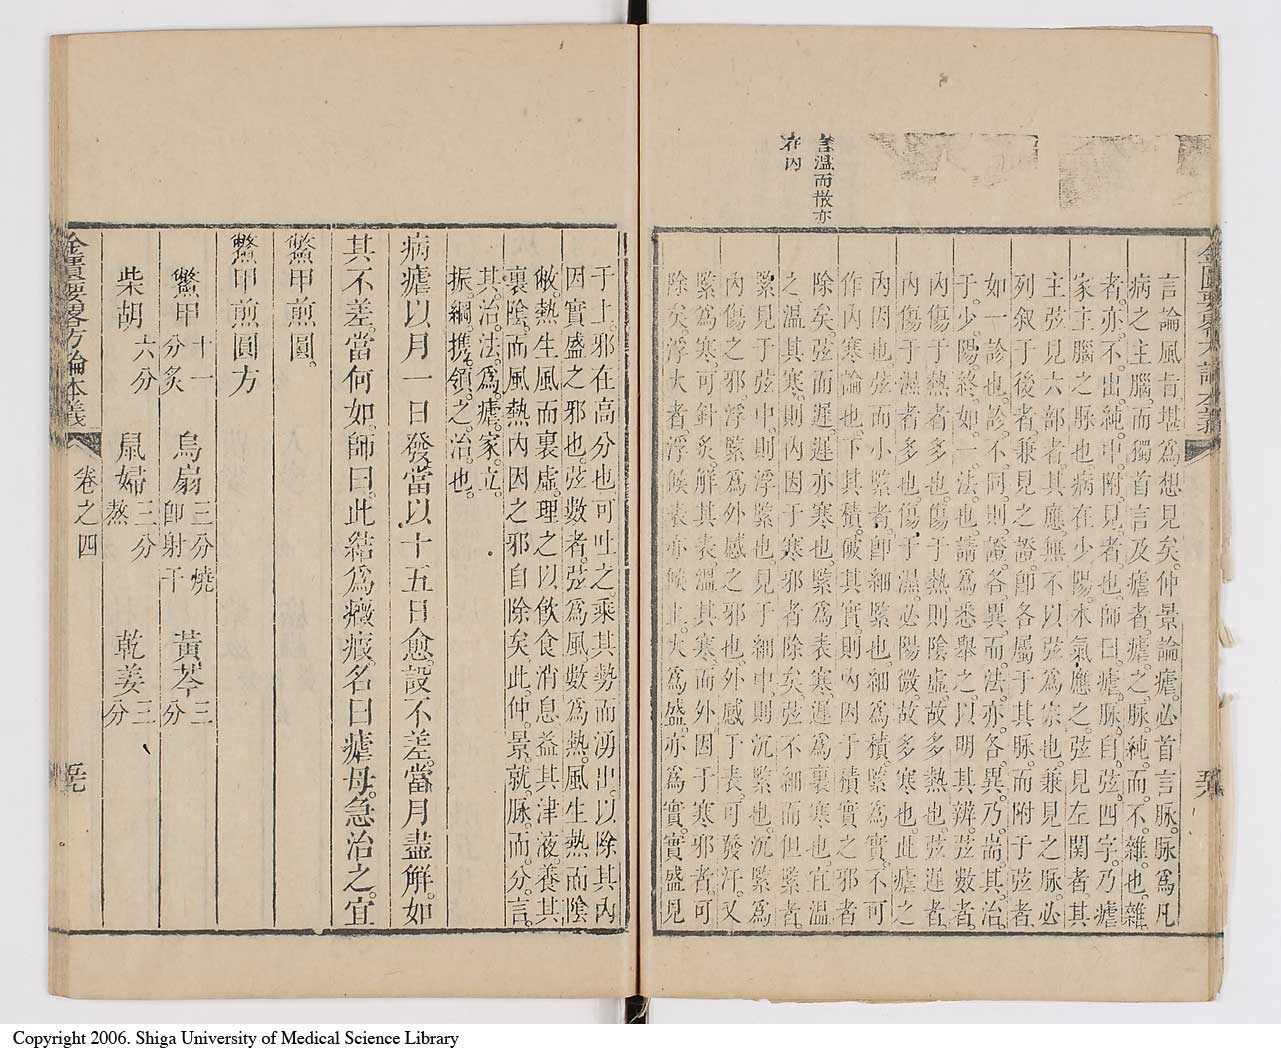 言溫而散亦
在內
言論風旨堪為想見矣。仲景論瘧。必首言脉。脉為凡
病之主腦。而獨首言及瘧者。瘧之脉。純而不雜也。雜
者。亦不出純中附見者也。師曰瘧脉自弦四字。乃瘧
家主腦之脉也。病在少陽。木氣應之。弦見左関者其
主。弦見六部者其應。無不以弦為宗也。兼見之脉。必
列叙于後者。兼見之證。卽各屬于其脉。而附于弦者。
如一診也。診不同。則證各異。而法亦各異。乃耑其治
于少陽。終如一法也。請為悉舉之。以明其辨。弦數者。
內傷于熱者多也。傷于熱。則陰虛。故多熱也。弦遲者。
內傷于濕者多也。傷于濕。必陽微。故多寒也。此瘧之
內因也。弦而小緊者。卽細緊也。細為積。緊為實。不可
作內寒論也。下其積。破其實。則內因于積實之邪者
除矣。弦而遲。遲亦寒也。緊為表寒。遲為裏寒也。宜溫
之。溫其寒。則內因于寒邪者除矣。弦不細而但緊者。
緊見于弦中。則浮緊也。見于細中。則沉緊也。沉緊為
內傷之邪。浮緊為外感之邪也。外感于表。可發汗。又
緊為寒。可針灸。觧其表。溫其寒。而外因于寒邪者。可
除矣。浮大者。浮候表亦候上。大為盛。亦為實。實盛見
于上。邪在高分也。可吐之。乘其勢而湧出。以除其內
因實盛之邪也。弦數者。弦為風。數為熱。風生熱而陰
敝。熱生風而裏虛。理之以飲食消息。益其津液。養其
裏陰。而風熱內因之邪自除矣。此仲景就脉而分言
其治法。為瘧家立
振綱携領之治也。
病瘧以月一日發。當以十五日愈。設不差。當月盡解。如
其不差。當何如。師曰。此結為癥瘕。名曰瘧母。急治之。宜
鱉甲煎圓。
鱉甲煎圓方
鱉甲十一分炙 烏扇三分燒卽射干 黃芩三分
柴胡六分 鼠婦三分熬 乾姜三分
金匱要畧方論本義 卷之四
Copyright 2006. Shiga University of Medical Science Library